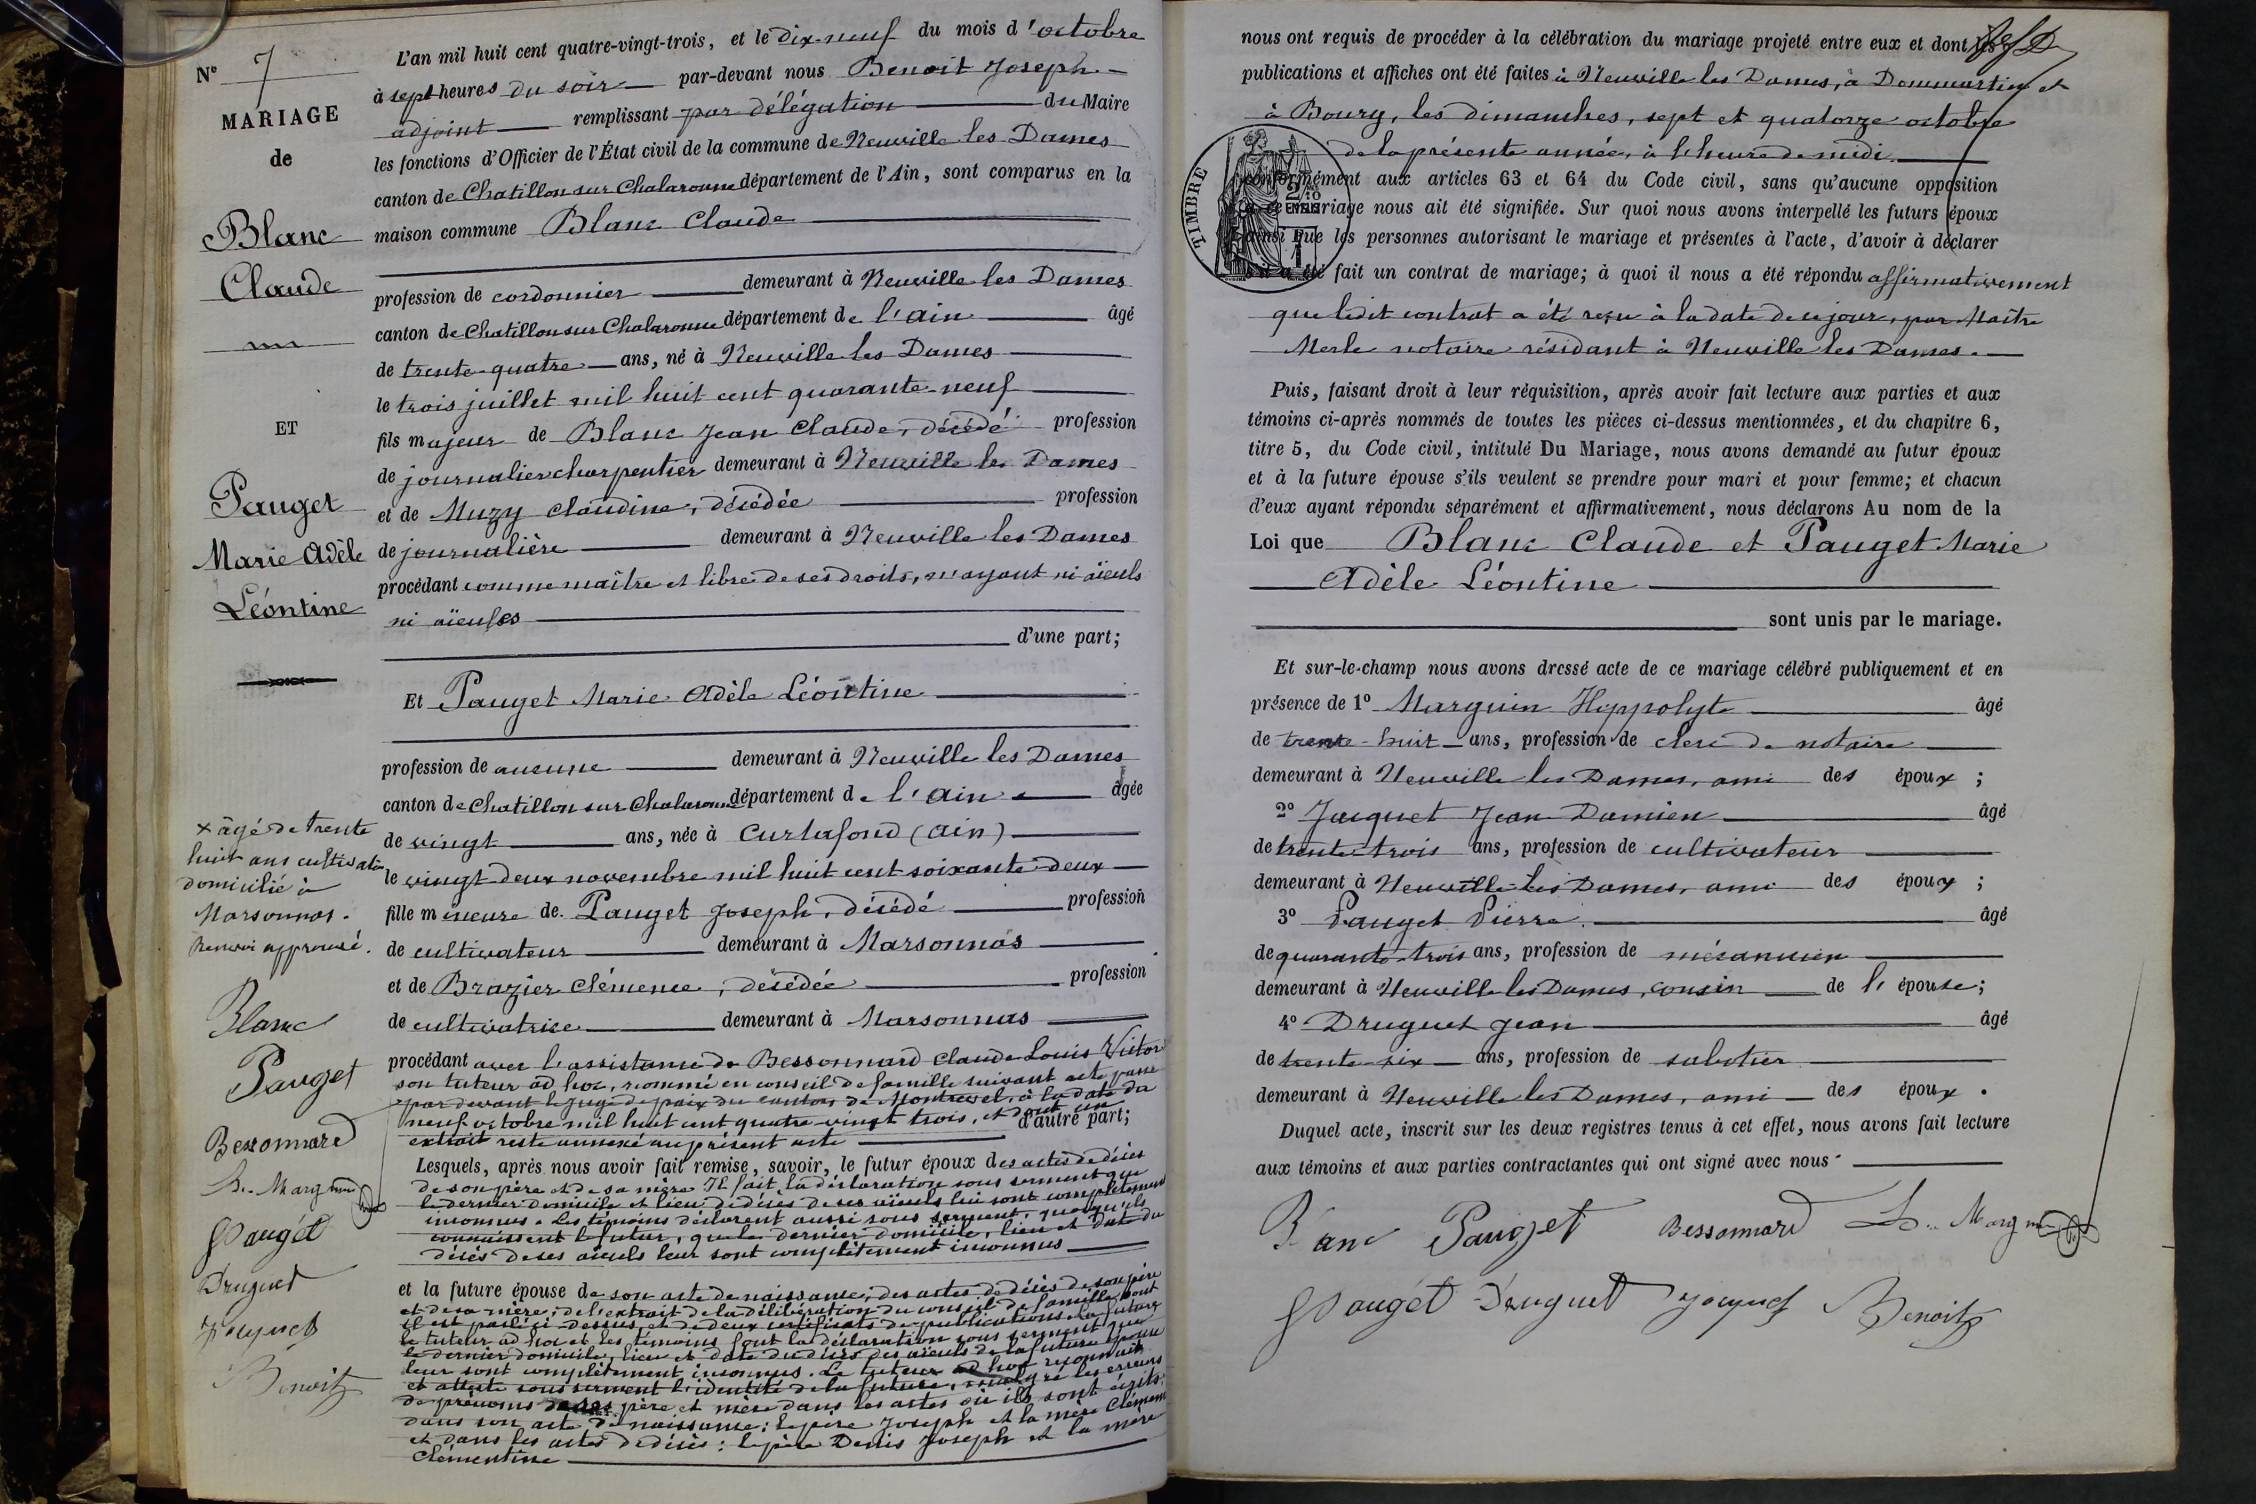 N° 7
MARIAGE
de
Blanc
Claude
ET
Pauget
Marie Adèle
Léontine
x âgé de trente
huit ans cultivateur
domicilié à
Marsonnas.
Renvoi approuvé.
Blanc
Pauget
Bessonnard
H. Marguin
P Paugét
Druguet
Jacquet
Benoit
L'an mil huit cent quatre-vingt-trois, et le dix-neuf du mois d'octobre
à sept heures du soir par-devant nous Benoit Joseph
adjoint remplissant par délégation du Maire
les fonctions d'Officier de l'État civil de la commune de Neuville les Dames
canton de Chatillon sur Chalaronne département de l'Ain, sont comparus en la
maison commune Blanc Claude
profession de cordonnier demeurant à Neuville les Dames
canton de Chatillon sur Chalaronne département de l'ain âgé
de trente-quatre ans, né à Neuville les Dames
le trois juillet mil huit cent quarante-neuf
fils majeur de Blanc Jean Claude, décédé profession
de journalier charpentier demeurant à Neuville les Dames
et de Muzy Claudine, décédée profession
de journalière demeurant à Neuville les Dames
procédant comme maître et libre de ses droits, n'ayant ni aïeuls
ni aïeules
d'une part;
Et Pauget Marie Adèle Léontine
profession de aucune demeurant à Neuville les Dames
canton de Chatillon sur Chalaronne département de l'ain âgée
de vingt ans, née à Curtafond (ain)
le vingt-deux novembre mil huit cent soixante-deux
fille mineure de Pauget Joseph, décédé profession
de cultivateur demeurant à Marsonnas
et de Brazier Clémence, décédée profession
de cultivatrice demeurant à Marsonnas
procédant avec l'assistance de Bessonnard Claude Louis Victor
son tuteur ad hoc, nommé en conseil de famille suivant acte passé
par devant le juge de paix du canton de Montrevel, à la date du
neuf octobre mil huit cent quatre-vingt trois, et dont un
extrait reste annexé au présent acte d'autre part;
Lesquels, après nous avoir fait remise, savoir, le futur époux des actes de décès
de son père et de sa mère Il fait la déclaration sous serment que
le dernier domicile et lieu de décès de ses aïeuls lui sont complètement
inconnus. Les témoins déclarent aussi sous serment, quoiqu'ils
connaissent le futur, que le dernier domicile, lieu et date du
décès de ses aïeuls leur sont complètement inconnus
et la future épouse de son acte de naissance, des actes de décès de son père
et de sa mère, de l'extrait de la délibération du conseil de famille dont
il est parlé ci-dessus, et de deux certificats de publications. La future
le tuteur ad hoc et les témoins font la déclaration sous serment que
le dernier domicile, lieu et date du décès des aïeuls de la future épouse
leur sont complètement inconnus. Le tuteur ad hoc reconnait
et atteste sous serment l'identité de la future, malgré les erreurs
de prénoms de ses père et mère dans les actes où ils sont écrits:
dans son acte de naissance: le père Joseph et la mère Clémence
et dans les actes de décès: le père Denis Joseph et la mère
Clémentine
nous ont requis de procéder à la célébration du mariage projeté entre eux et dont les
publications et affiches ont été faites à Neuville les Dames, à Dommartin et
à Bourg, les dimanches, sept et quatorze octobre
de la présente année, à l'heure de midi
conformément aux articles 63 et 64 du Code civil, sans qu'aucune opposition
à ce mariage nous ait été signifiée. Sur quoi nous avons interpellé les futurs époux
ainsi que les personnes autorisant le mariage et présentes à l'acte, d'avoir à déclarer
s'il a été fait un contrat de mariage; à quoi il nous a été répondu affirmativement
que ledit contrat a été reçu à la date de ce jour, par Maître
Merle notaire résidant à Neuville les Dames.
TIMBRE
Puis, faisant droit à leur réquisition, après avoir fait lecture aux parties et aux
témoins ci-après nommés de toutes les pièces ci-dessus mentionnées, et du chapitre 6,
titre 5, du Code civil, intitulé Du Mariage, nous avons demandé au futur époux
et à la future épouse s'ils veulent se prendre pour mari et pour femme; et chacun
d'eux ayant répondu séparément et affirmativement, nous déclarons Au nom de la
Loi que Blanc Claude et Pauget Marie
Adèle Léontine
sont unis par le mariage.
Et sur-le-champ nous avons dressé acte de ce mariage célébré publiquement et en
présence de 1° Marguin Hyppolyte âgé
de trente-huit ans, profession de clerc de notaire
demeurant à Neuville les Dames, ami des époux ;
2° Jacquet Jean Damien âgé
de trente-trois ans, profession de cultivateur
demeurant à Neuville les Dames, ami des époux ;
3° Pauget Pierre âgé
de quarante-trois ans, profession de mécanicien
demeurant à Neuville les Dames, cousin de l'épouse;
4° Druguet Jean âgé
de trente-six ans, profession de sabotier
demeurant à Neuville les Dames, ami des époux .
Duquel acte, inscrit sur les deux registres tenus à cet effet, nous avons fait lecture
aux témoins et aux parties contractantes qui ont signé avec nous
Blanc Pauget Bessonnard H. Marguin
P Paugét Druguet Jacquet Benoit